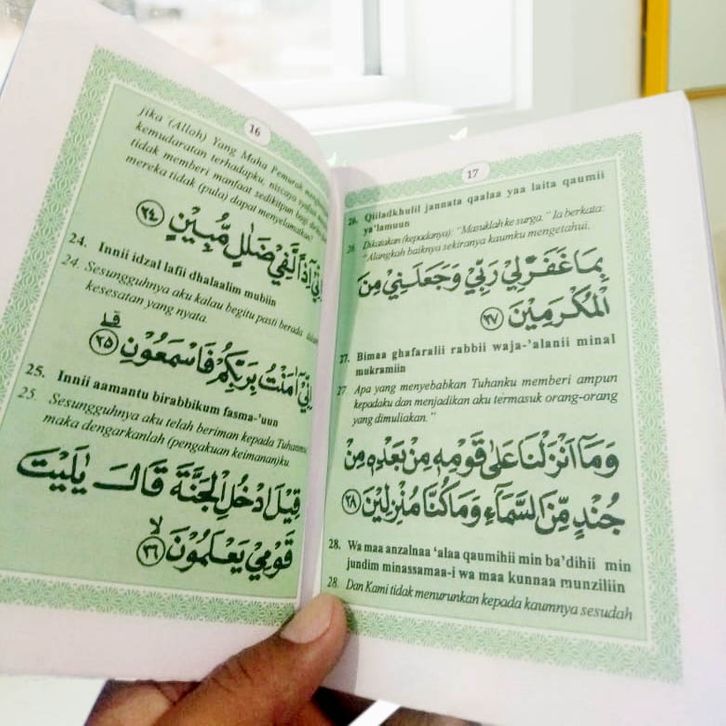 16
jika (Allah) Yang Maha Pemurah
kemudaratan terhadapku, niscaya syafaat
tidak memberi manfaat sedikitpun bagi
mereka tidak (pula) dapat menyelamatkan?
اِنِّيْٓ اِذًا لَّفِيْ ضَلٰلٍ مُّبِيْنٍ ٢٤
24. Innii idzal lafii dhalaalim mubiin
24. Sesungguhnya aku kalau begitu pasti berada
kesesatan yang nyata.
اِنِّيْٓ اٰمَنْتُ بِرَبِّكُمْ فَاسْمَعُوْنِ ٢٥
25. Innii aamantu birabbikum fasma-'uun
25. Sesungguhnya aku telah beriman kepada Tuhanmu
maka dengarkanlah (pengakuan keimanan)ku.
قِيْلَ ادْخُلِ الْجَنَّةَ قَالَ يٰلَيْتَ
قَوْمِيْ يَعْلَمُوْنَ ٢٦
17
26. Qiiladkhulil jannata qaalaa yaa laita qaumii
ya'lamuun
26. Dikatakan (kepadanya): "Masuklah ke surga." Ia berkata:
"Alangkah baiknya sekiranya kaumku mengetahui.
بِمَا غَفَرَ لِيْ رَبِّيْ وَجَعَلَنِيْ مِنَ
الْمُكْرَمِيْنَ ٢٧
27. Bimaa ghafaralii rabbii waja-'alanii minal
mukramiin
27 Apa yang menyebabkan Tuhanku memberi ampun
kepadaku dan menjadikan aku termasuk orang-orang
yang dimuliakan."
وَمَآ اَنْزَلْنَا عَلٰى قَوْمِهٖ مِنْۢ بَعْدِهٖ مِنْ
جُنْدٍ مِّنَ السَّمَآءِ وَمَا كُنَّا مُنْزِلِيْنَ ٢٨
28. Wa maa anzalnaa 'alaa qaumihii min ba'dihii min
jundim minassamaa-i wa maa kunnaa munziliin
28. Dan Kami tidak menurunkan kepada kaumnya sesudah